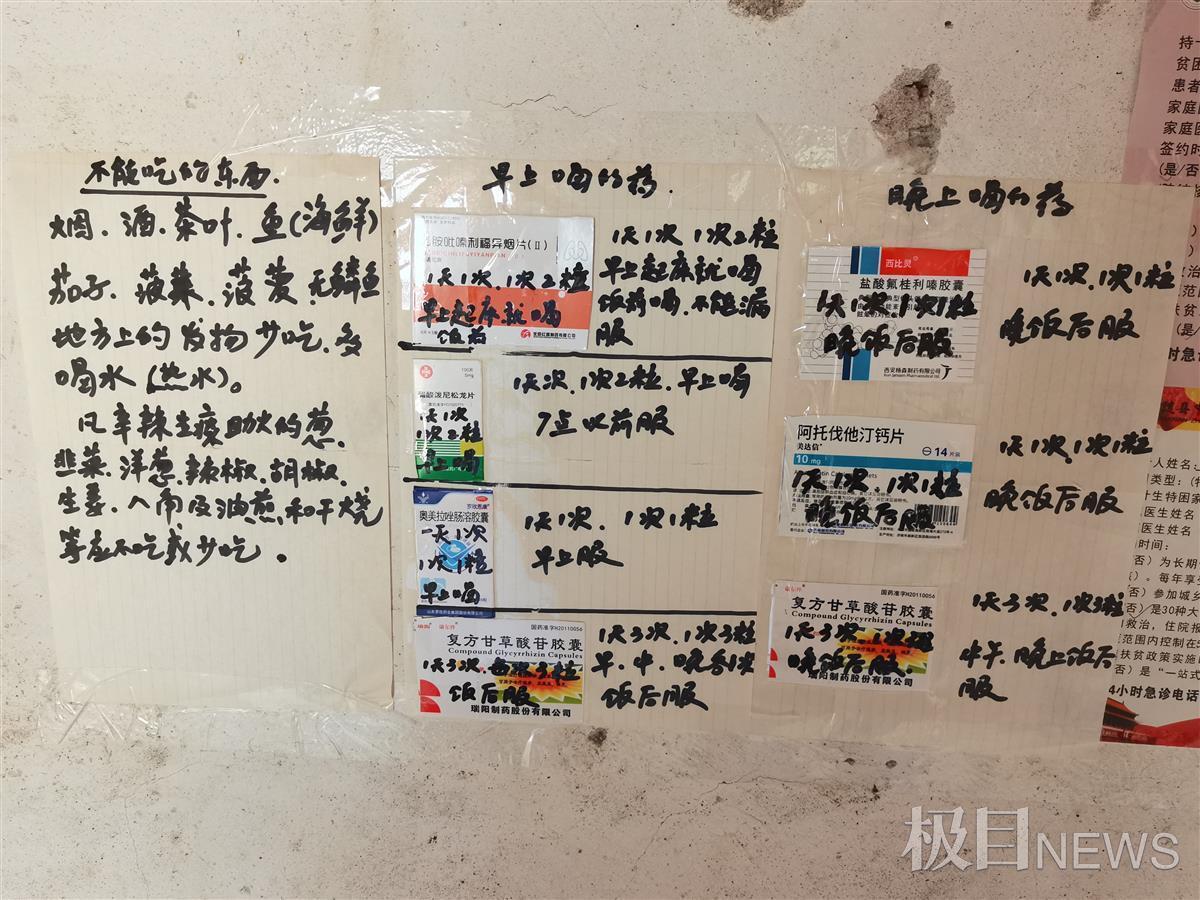 不能吃的东西.
烟、酒、茶叶、鱼(海鲜)
茄子、菠菜、菠菱、无鳞鱼
地方上的发物少吃,多
喝水(热水)。
凡辛辣生痰助火的葱、
韭菜、洋葱、辣椒、胡椒、
生姜、八角及油煎和干烧
等应不吃或少吃。
早上喝的药.
胺吡嗪利福异烟片(Ⅱ)
1天1次,1次2粒
早上起床就喝
饭前
1天1次,1次2粒
早上起床就喝
饭前喝,不能漏
服
100片
5mg
醋酸泼尼松龙片
1天1次
1次2粒
早上喝
1天1次,1次2粒,早上喝
7点以前服
罗欣恩康
奥美拉唑肠溶胶囊
一天1次
1次1粒
早上喝
1天1次,1次1粒
早上服
国药准字H20110056
复方甘草酸苷胶囊
Compound Glycyrrhizin Capsules
1天3次,每次3粒
饭后服
瑞阳制药股份有限公司
1天3次,1次3粒
早、中、晚各1次
饭后服
晚上喝的药
西比灵
盐酸氟桂利嗪胶囊
1天1次,1次1粒
晚饭后服
西安杨森制药有限公司
1天1次,1次1粒
晚饭后服
阿托伐他汀钙片
美达信
14片装
10 mg
1天1次,1次1粒
晚饭后服
1天1次,1次1粒
晚饭后服
康尔佳
国药准字H20110056
复方甘草酸苷胶囊
Compound Glycyrrhizin Capsules
1天3次,1次3粒
晚饭后服
瑞阳制药股份有限公司
1天3次,1次3粒
中午、晚上饭后
服
持一
贫困
患者
家庭
家庭医
签约时
(是/否
人姓名:
类型:(特
计生特困家
医生姓名
时间:
否)为长期
)。每年享
否)参加城乡
否)是30种大
救治,住院报
范围内控制在
扶贫政策实施
否)是“一站式
4小时急诊电话
极目NEWS